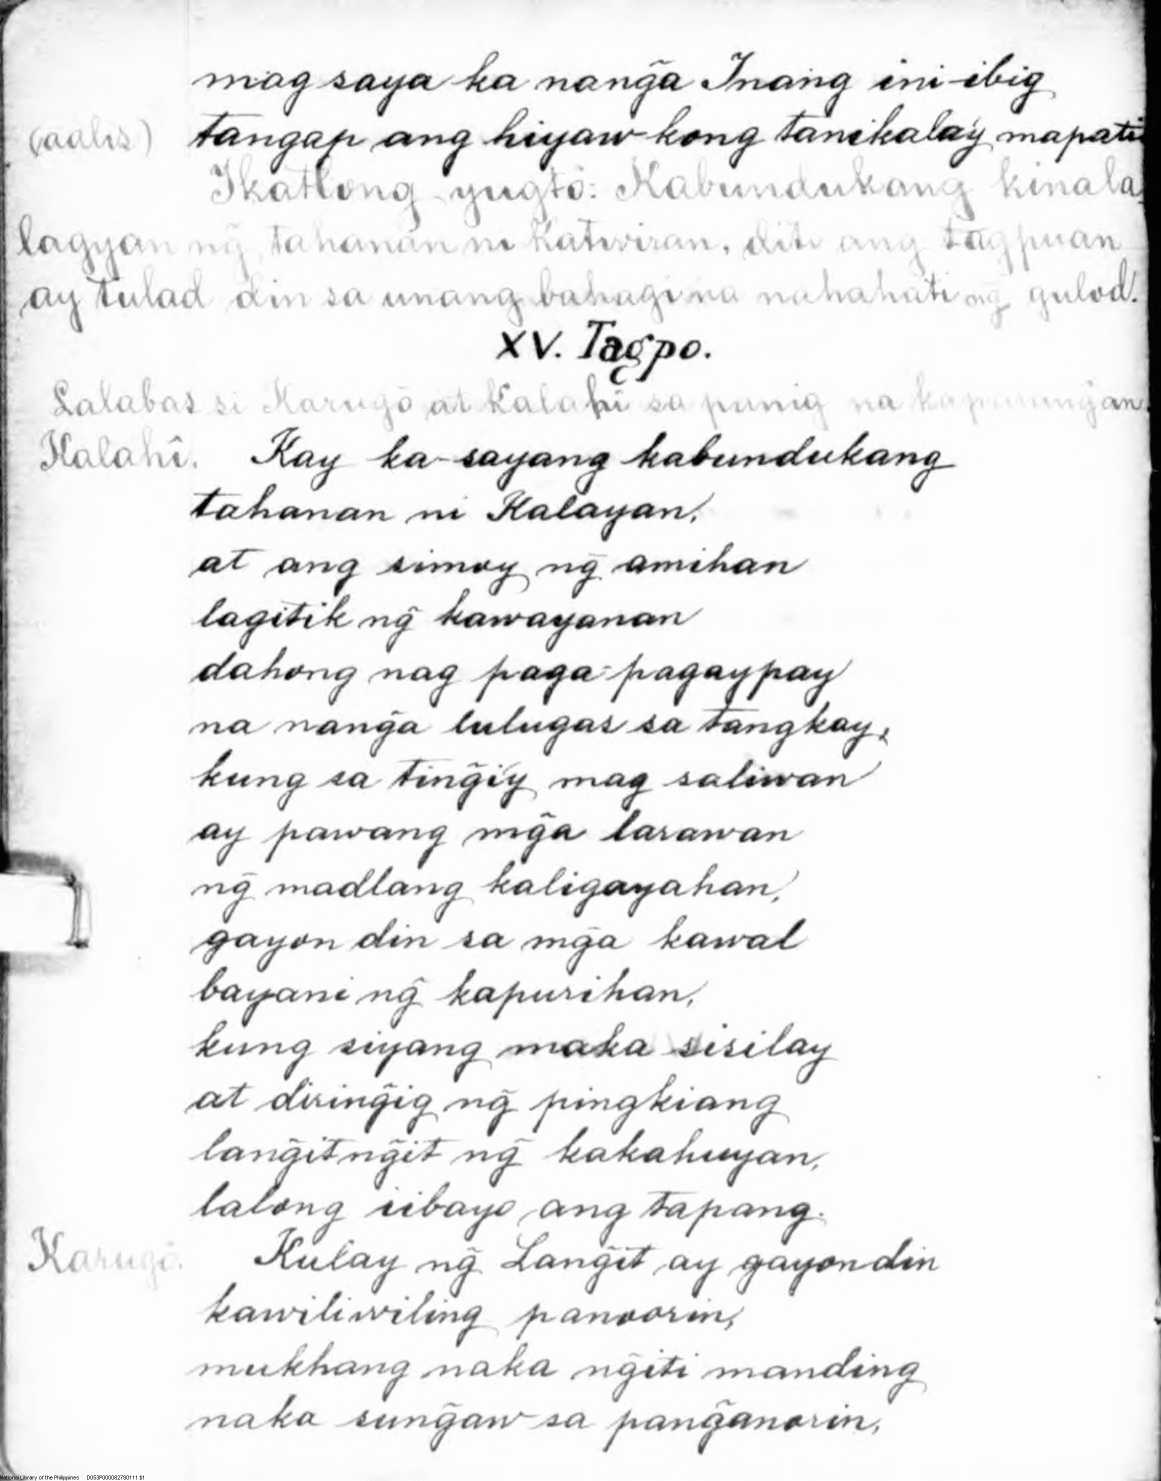 mag saya ka nang̃a Inang ini-ibig
(aalis) tangap ang hiyaw kong tanikala'y mapati
Ikatlong yugtô: Kabundukang kinala-
lagyan ng̃ tahanan ni Katwiran, dito ang tagpuan
ay tulad din sa unang bahagi na nahahati ng̃ gulod.
XV. Tagpo.
Lalabas si Karugô at Kalahî sa panig na
Kalahî. Kay ka-sayang kabundukang
tahanan ni Kalayan,
at ang simoy ng̃ amihan
lagitik ng̃ kawayanan
dahong nag paga-pagaypay
na nang̃a lulugas sa tangkay,
kung sa ting̃i'y mag saliwan
ay pawang mg̃a larawan
ng̃ madlang kaligayahan,
gayon din sa mg̃a kawal
bayani ng̃ kapurihan,
kung siyang maka sisilay
at diring̃ig ng̃ pingkiang
lang̃itng̃it ng̃ kakahuyan,
lalong iibayo ang tapang.
Karugô. Kulay ng̃ Lang̃it ay gayon din
kawiliwiling panoorin,
mukhang naka ng̃iti manding
naka sung̃aw sa pang̃anorin,
National Library of the Philippines D053P000082780111.tif